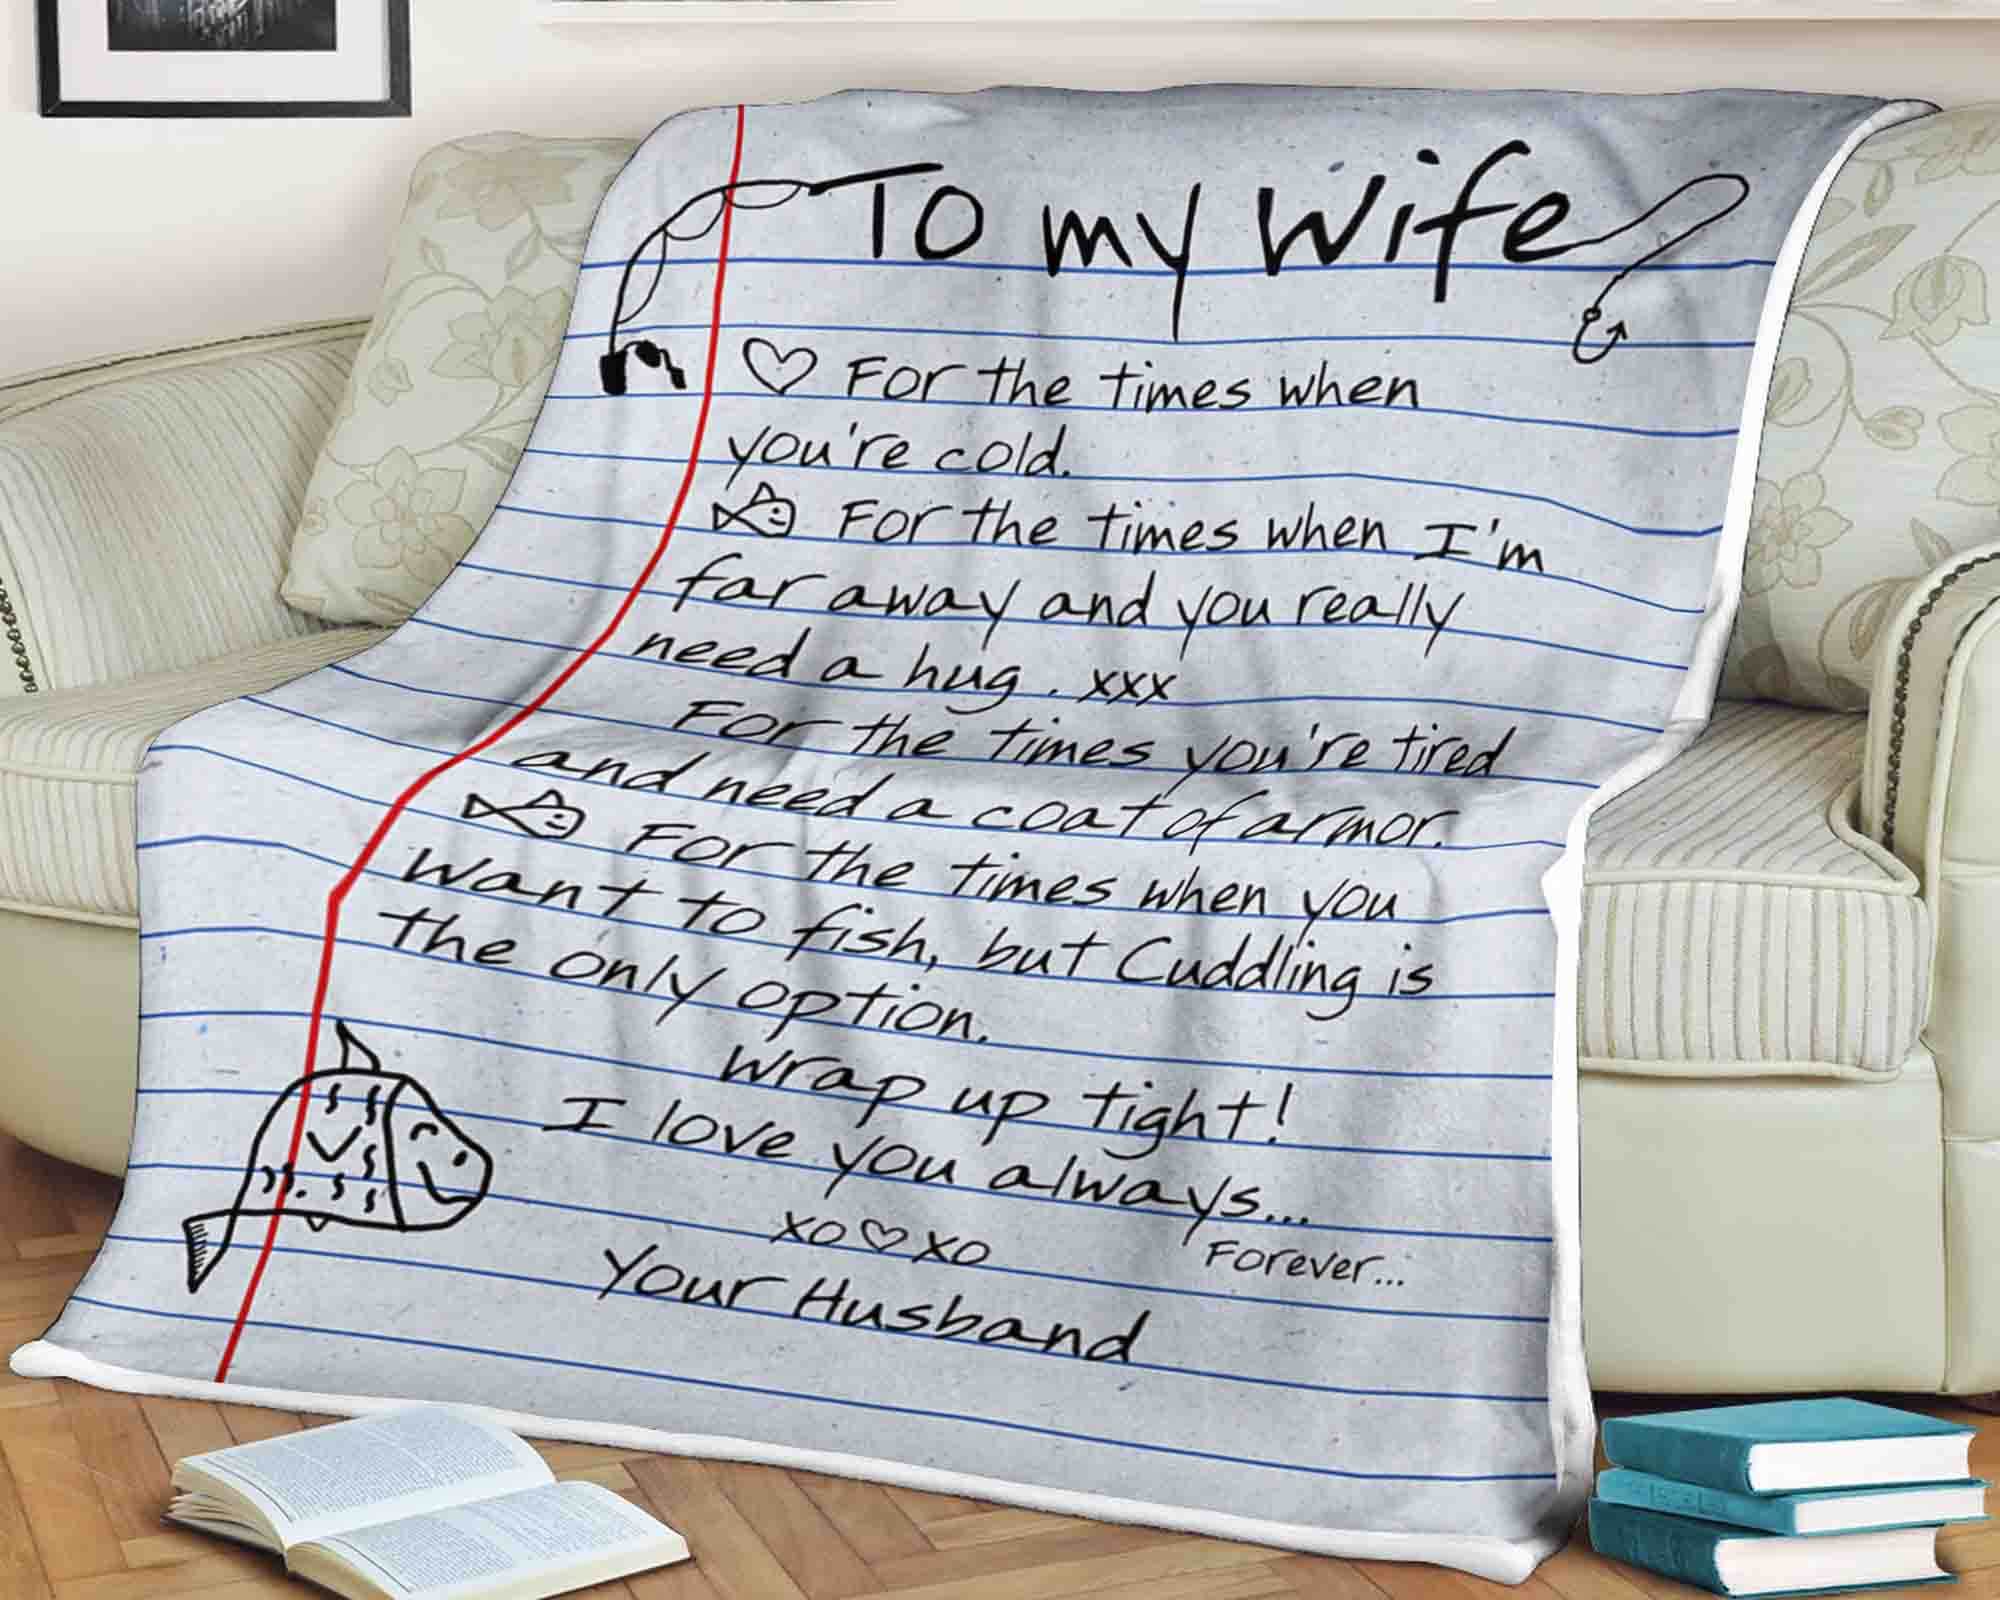 To my Wife
For the times when
you're cold.
For the times when I'm
far away and you really
need a hug. xxx
For the times you're tired
and need a coat of armor.
For the times when you
want to fish, but Cuddling is
the only option.
wrap up tight!
I love you always...
Forever...
xo♡xo
Your Husband